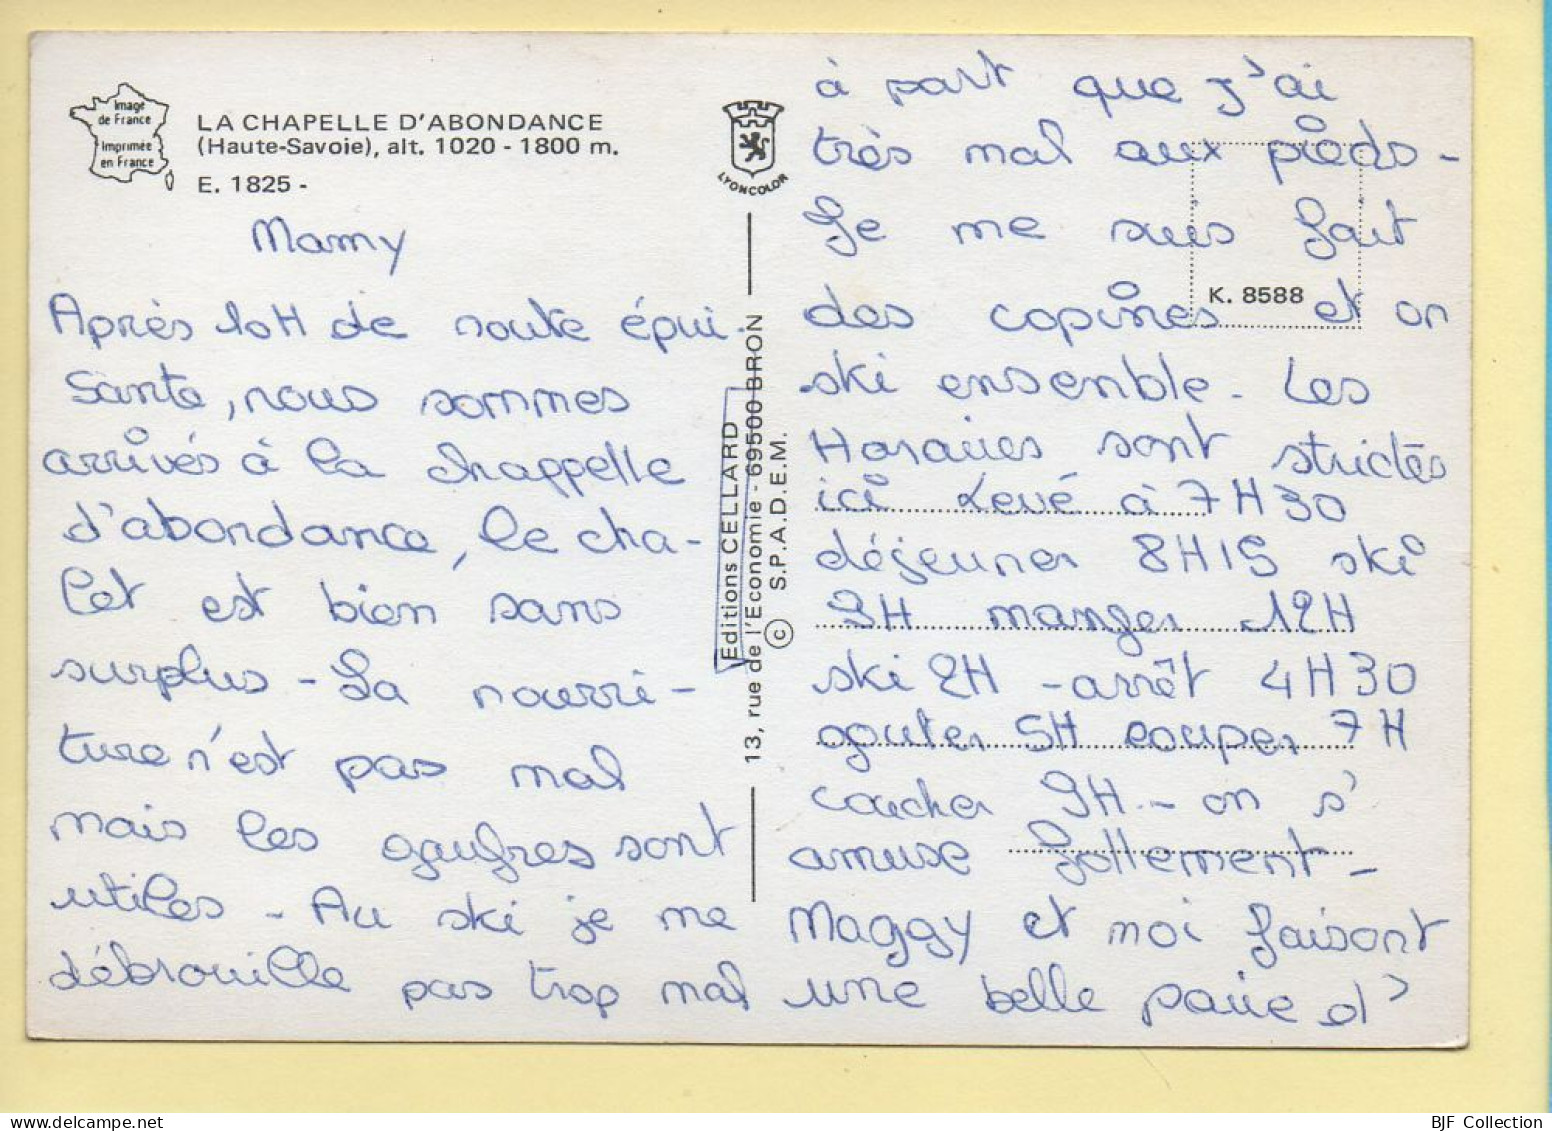 Image
de France
Imprimée
en France
LA CHAPELLE D'ABONDANCE
(Haute-Savoie), alt. 1020 - 1800 m.
E. 1825 -
LYONCOLOR
Mamy
Après 10H de route épui-
sante, nous sommes
arrivés à la chappelle
d'abondance, le cha-
let est bien sans
surplus - La nourri-
ture n'est pas mal
mais les gaufres sont
utiles - Au ski je me
débrouille pas trop mal
Editions CELLARD
13, rue de l'Economie - 69500 BRON
© S.P.A.D.E.M.
K. 8588
à part que j'ai
très mal aux pieds -
Je me suis fait
des copines et on
ski ensemble - Les
Horaires sont strictes
ici Levé à 7H30
déjeuner 8H15 ski
9H manger 12H
ski 2H - arrêt 4H30
gouter 5H souper 7H
coucher 9H - on s'
amuse follement -
Maggy et moi faisont
une belle paire d'
BJF Collection